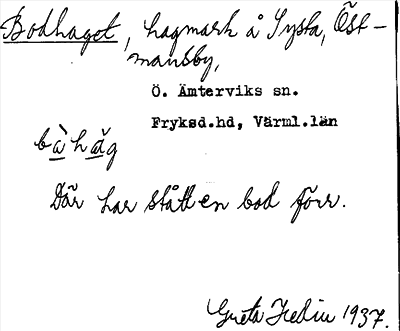 Bodhaget, hagmark å Sysla, Öst-
mansby,
Ö. Ämterviks sn.
Fryksd.hd, Värml.län
bàhăg
Där har stått en bod förr.
Greta Hedin 1937.